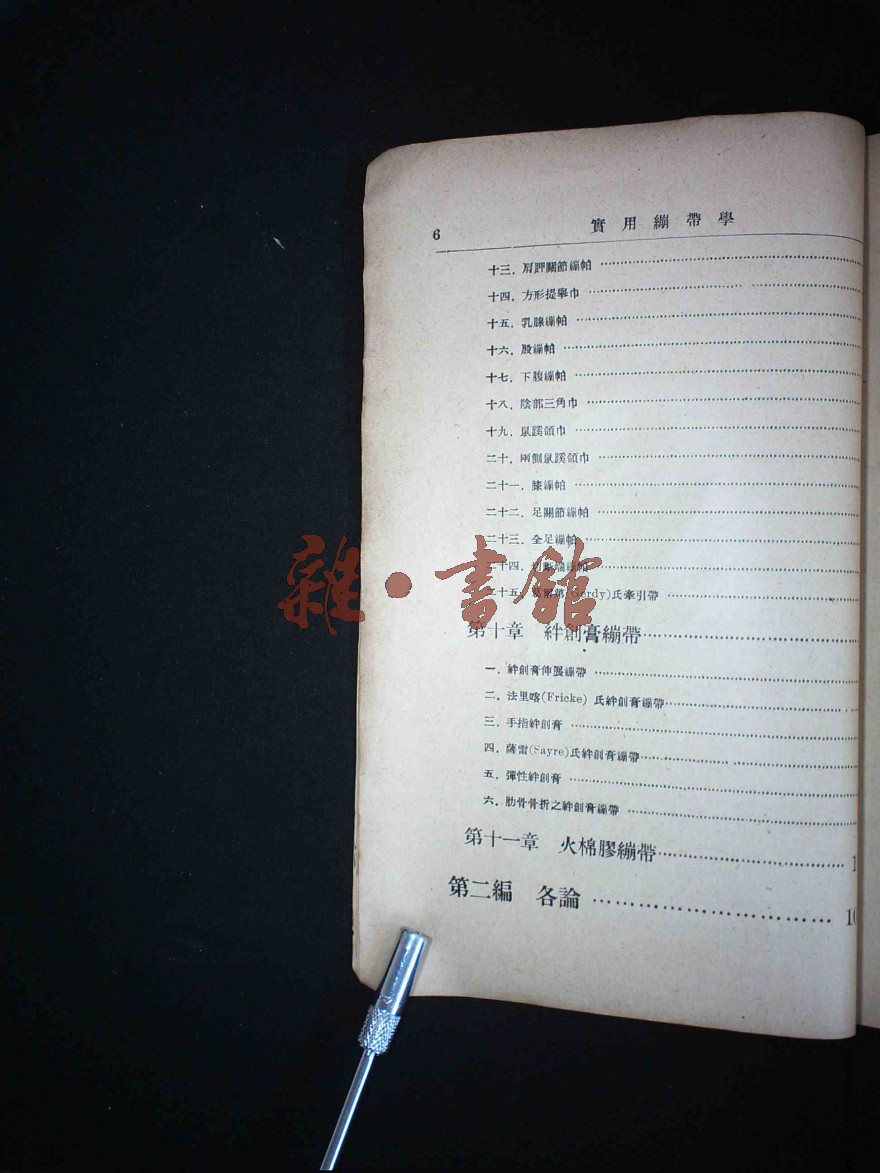 6 實用繃帶學
十三．肩胛關節繃帕
十四．方形提舉巾
十五．乳腺繃帕
十六．股繃帕
十七．下腹繃帕
十八．陰部三角巾
十九．鼠蹊領巾
二十．兩側鼠蹊領巾
二十一．膝繃帕
二十二．足關節繃帕
二十三．全足繃帕
二十四．切斷端繃帕
二十五．(Gerdy)氏牽引帶
雜·書館
第十章 絆創膏繃帶
一．絆創膏伸展繃帶
二．法里喀(Fricke) 氏絆創膏繃帶
三．手指絆創膏
四．薩雷(Sayre)氏絆創膏繃帶
五．彈性絆創膏
六．肋骨骨折之絆創膏繃帶
第十一章 火棉膠繃帶 1
第二編 各論 10